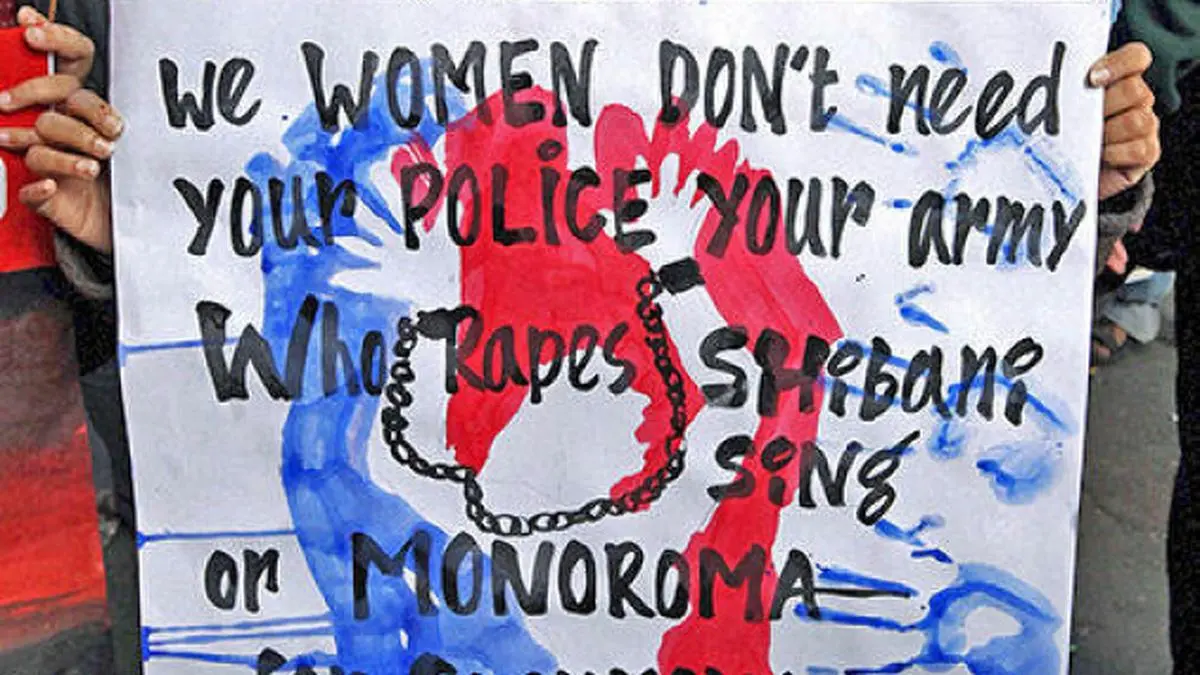 We WOMEN DON't need
your POLICE your army
Who Rapes SHibani
SiNg
or MONOROMA